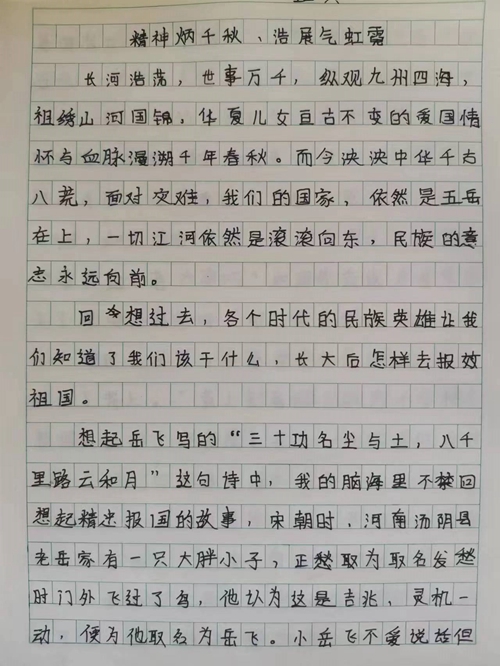 精神炳千秋、浩展气虹霓
长河浩荡，世事万千，纵观九州四海，
祖绣山河国锦，华夏儿女亘古不变的爱国情
怀与血脉漫溯千年春秋。而今泱泱中华千古
八荒，面对灾难，我们的国家，依然是五岳
在上，一切江河依然是滚滚向东，民族的意
志永远向前。
回想过去，各个时代的民族英雄让我
们知道了我们该干什么，长大后怎样去报效
祖国。
想起岳飞写的“三十功名尘与土，八千
里路云和月”这句诗中，我的脑海里不禁回
想起精忠报国的故事，宋朝时，河南汤阴县
老岳家有一只大胖小子，正愁取为取名发愁
时门外飞过了鸟，他认为这是吉兆，灵机一
动，便为他取名为岳飞。小岳飞不爱说话但